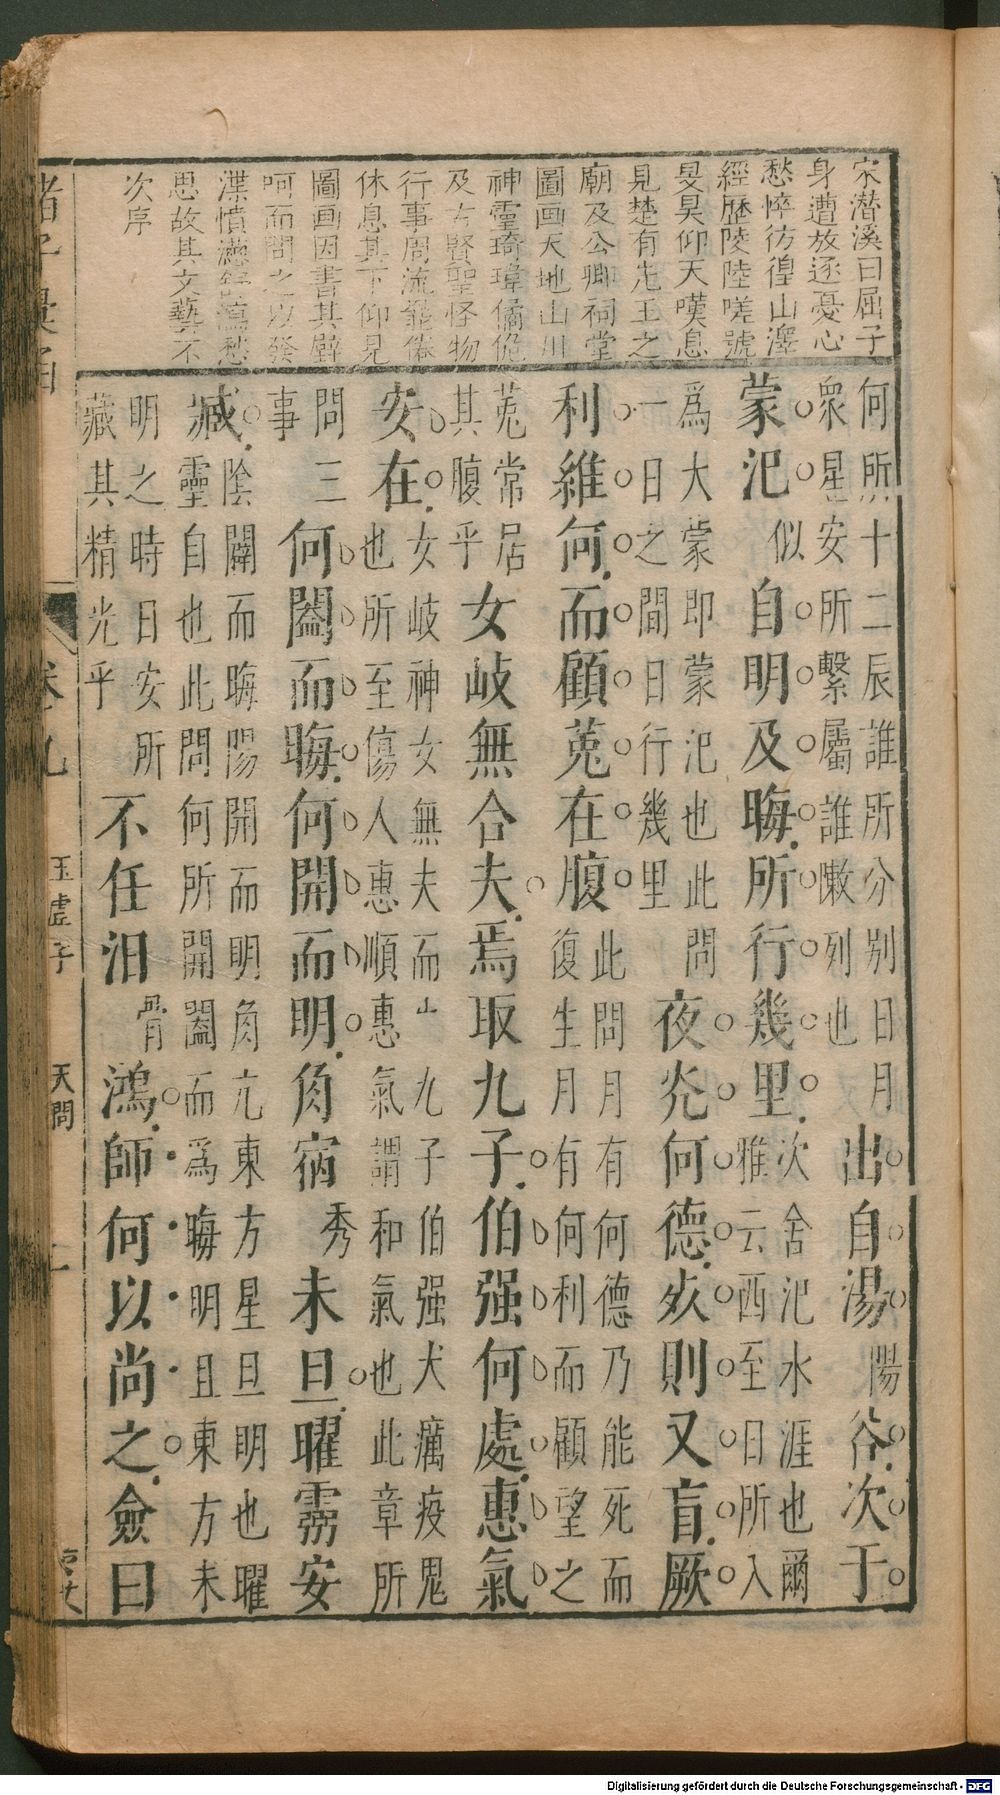 宋潜溪曰屈子
身遭放逐憂心
愁悴彷徨山澤
經歴陵陸嗟號
旻昊仰天嘆息
見楚有先王之
廟及公卿祠堂
圖画天地山川
神霊琦瑋僪佹
及古賢聖怪物
行事周流罷倦
休息其下仰見
圖画因書其壁
呵而問之以發
渫憤懣舒瀉愁
思故其文藝不
次序
何所十二辰誰所分别日月
衆星安所繫屬誰敶列也
出自湯陽谷次于
蒙汜似自明及晦所行幾里
次舍汜水涯也爾
雅云西至日所入
爲大蒙即蒙汜也此問
一日之間日行幾里
夜光何德死則又盲厥
利維何而顧菟在腹
此問月有何德乃能死而
復生月有何利而顧望之
菟常居
其腹乎
女岐無合夫焉取九子伯强何處惠氣
安在
女岐神女無夫而生九子伯强大癘疫鬼
也所至傷人惠順惠氣謂和氣也此章所
問三
事
何闔而晦何開而明角宿秀未旦曜霛安
臧
陰闢而晦陽開而明角亢東方星旦明也曜
靈自也此問何所開闔而爲晦明且東方未
明之時日安所
藏其精光乎
不任汩骨鴻師何以尚之僉曰
諸子彙函 卷九 玉虚子 天問 二
Digitalisierung gefördert durch die Deutsche Forschungsgemeinschaft - DFG